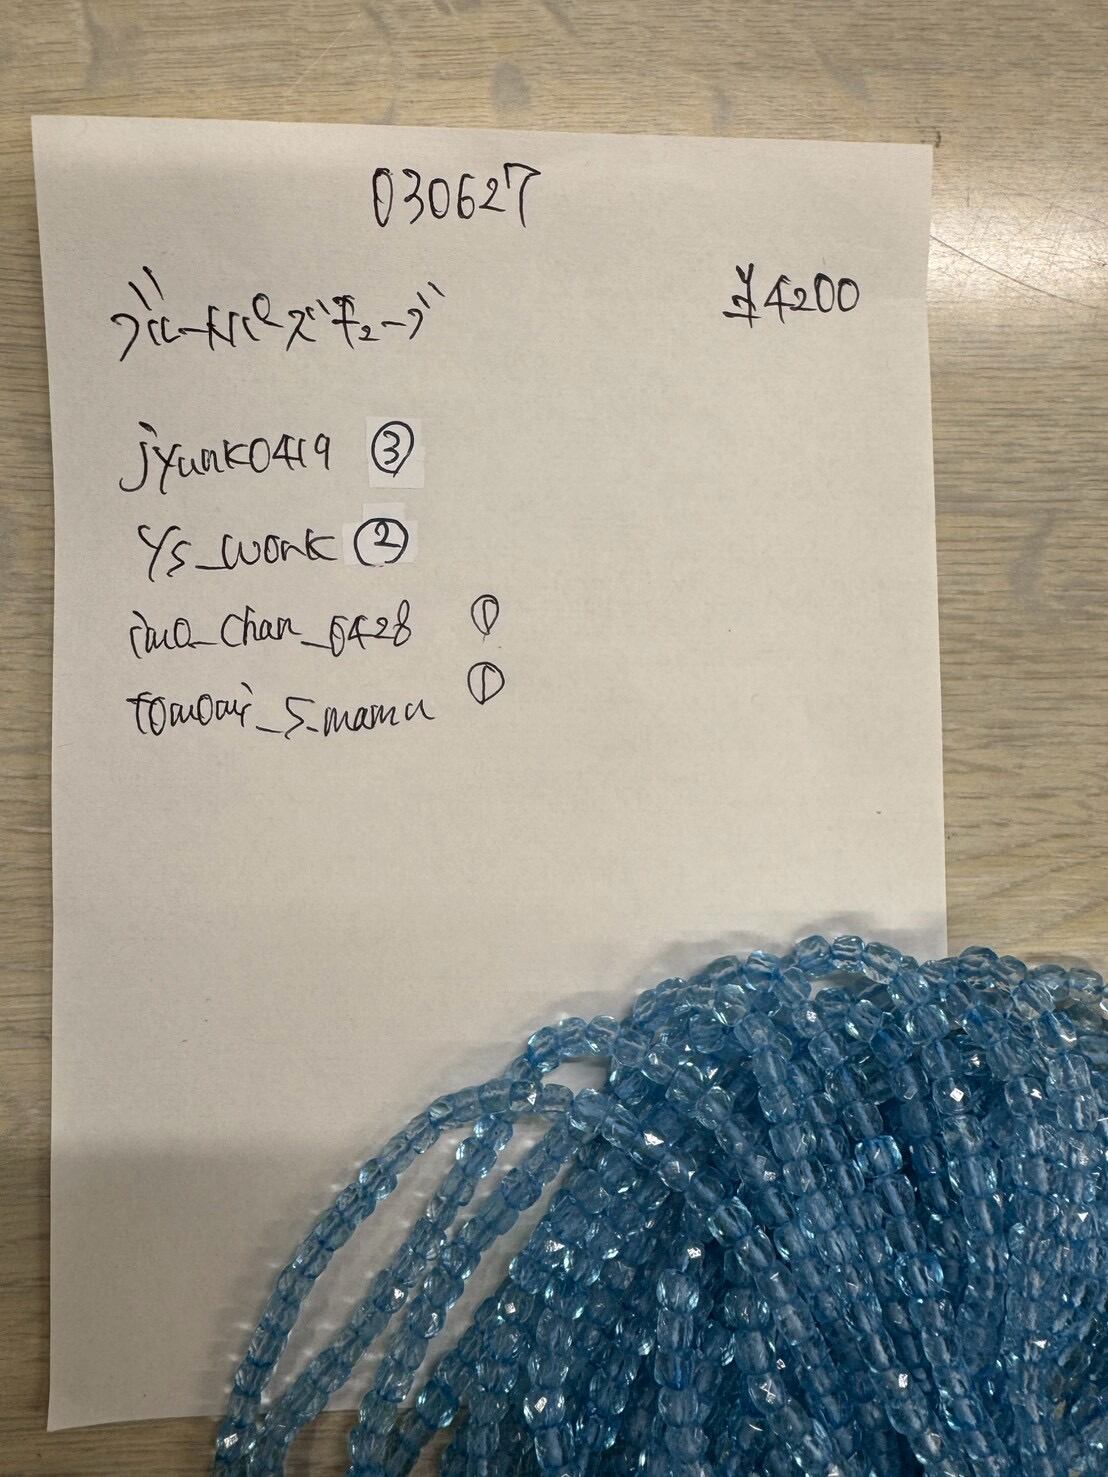 030627
ブルートパーズキューブ ¥4200
jyunk0419 ③
ys_work ②
ino_chan_0428 ①
tomomi_s_mama ①